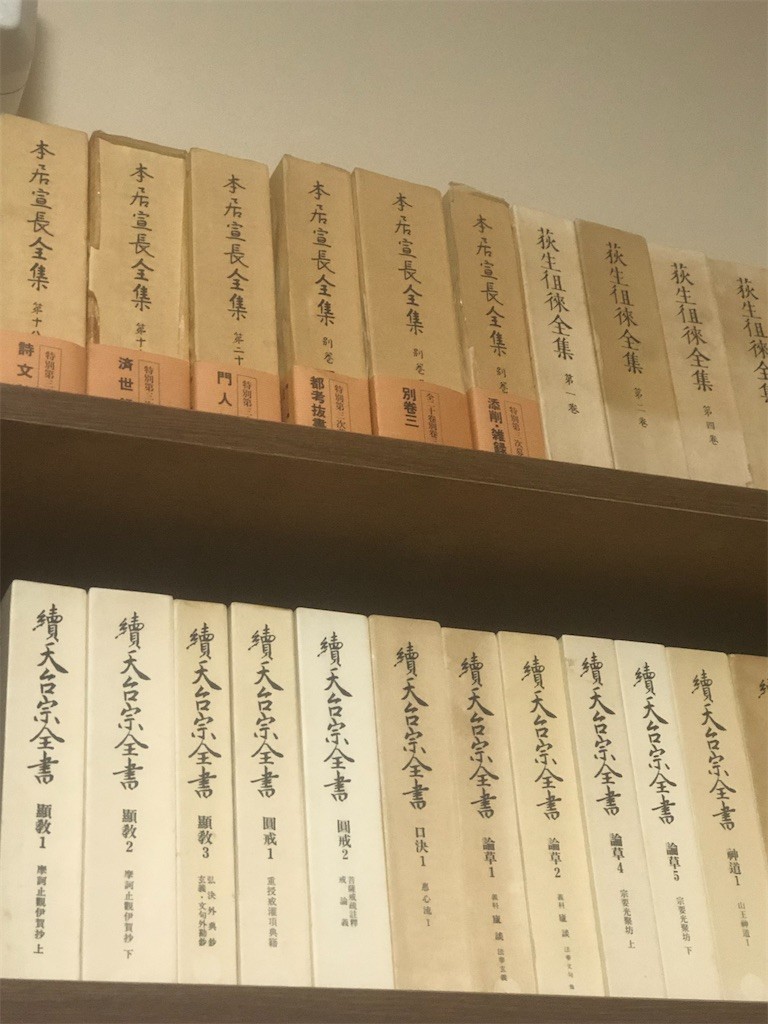 本居宣長全集 第十八
詩文
本居宣長全集 第十
特別第三
済世
本居宣長全集 第二十
特別第三
門人
本居宣長全集 別巻
特別第三次
都考抜書
本居宣長全集 別巻
全二十巻別巻
別巻三
本居宣長全集 別巻
特別第三次
添削・雑録
荻生徂徠全集 第一巻
荻生徂徠全集 第二巻
荻生徂徠全集 第四巻
荻生徂徠全集
續天台宗全書 顯教1 摩訶止觀伊賀抄 上
續天台宗全書 顯教2 摩訶止觀伊賀抄 下
續天台宗全書 顯教3 弘決外典鈔
玄義・文句外勘鈔
續天台宗全書 圓戒1 重授戒灌頂典籍
續天台宗全書 圓戒2 菩薩戒疏註釋
戒論義
續天台宗全書 口決1 惠心流1
續天台宗全書 論草1 義科 廬談 法華玄義
續天台宗全書 論草2 義科 廬談 法華文句
續天台宗全書 論草4 宗要光聚坊 上
續天台宗全書 論草5 宗要光聚坊 下
續天台宗全書 神道1 山王神道1
續